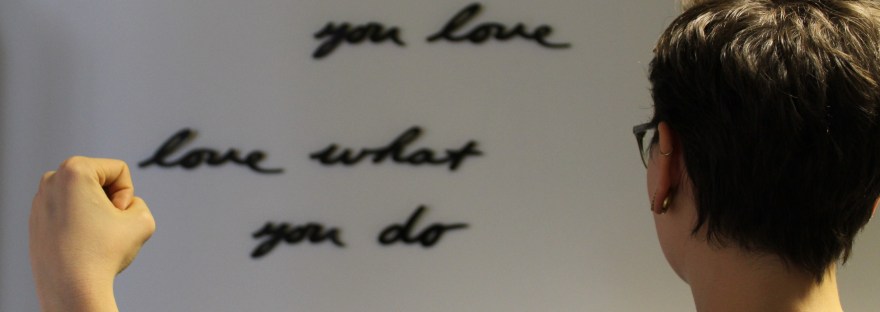 you love
love what
you do